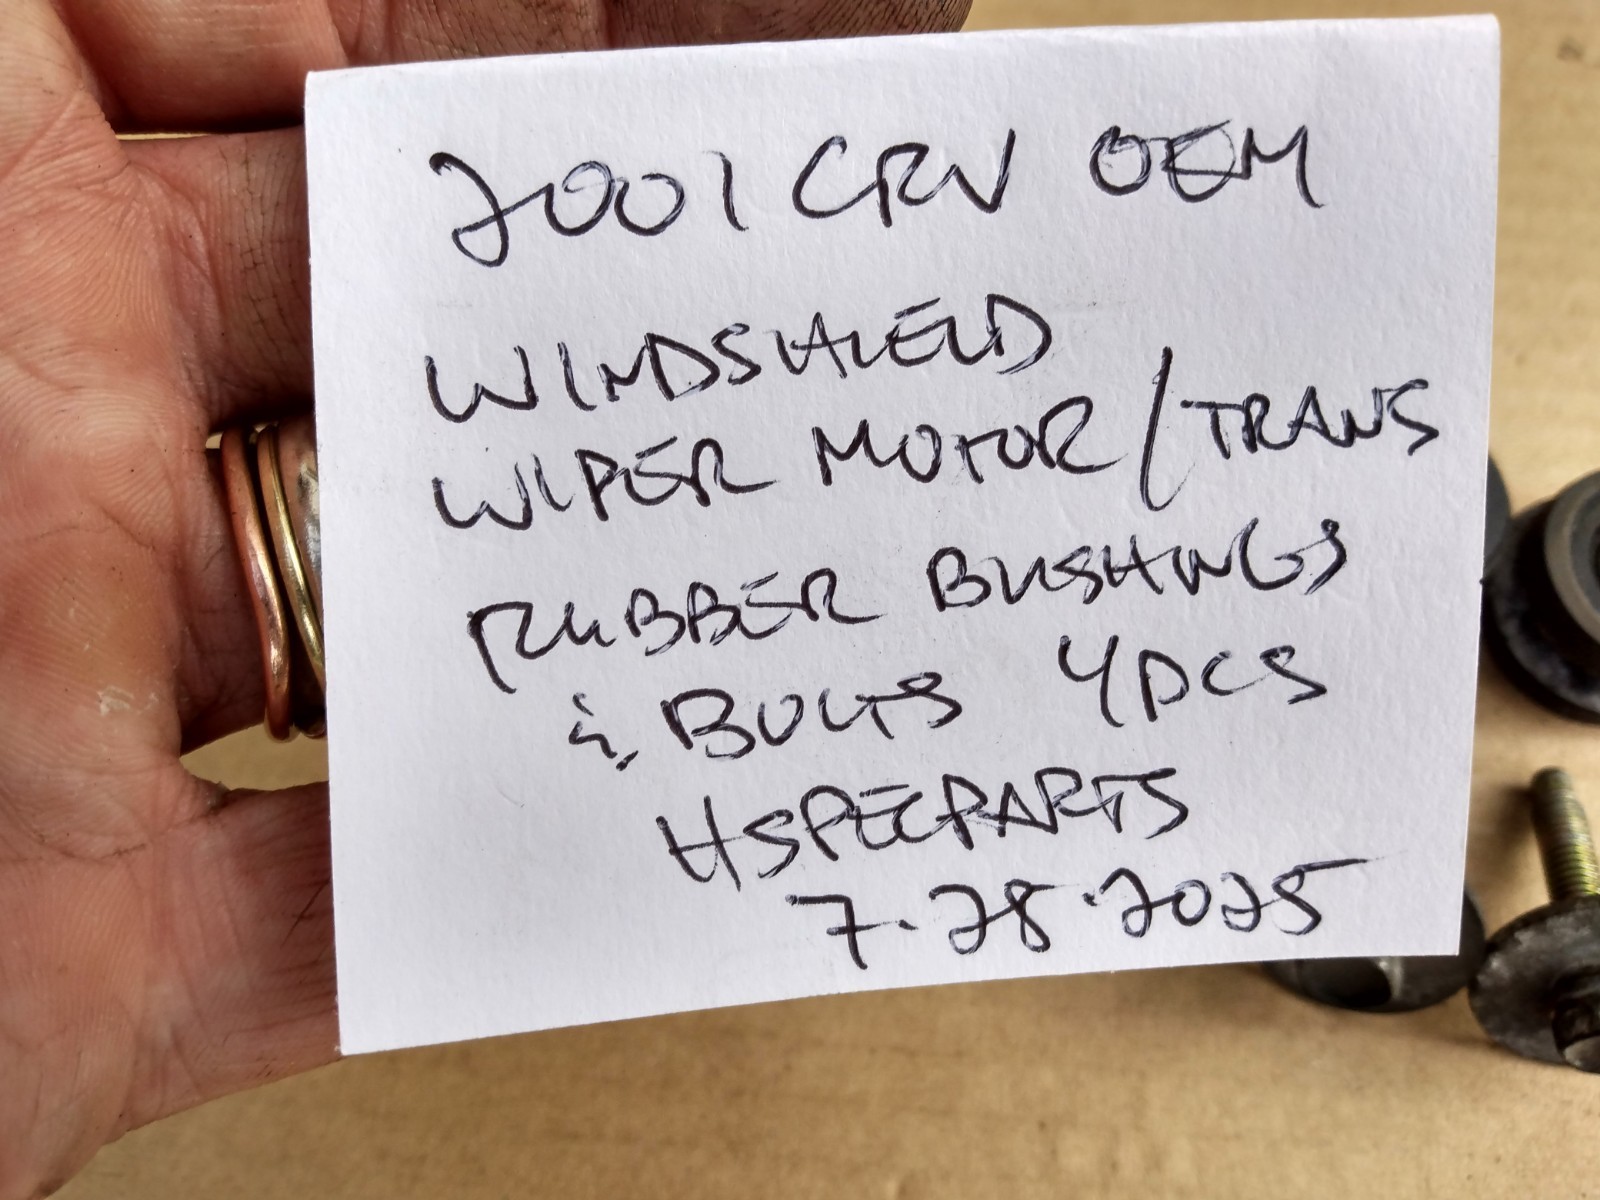 2001 CRV OEM
WINDSHIELD
WIPER MOTOR/TRANS
RUBBER BUSHINGS
& BOLTS 4PCS
HSPECPARTS
7.28.2025